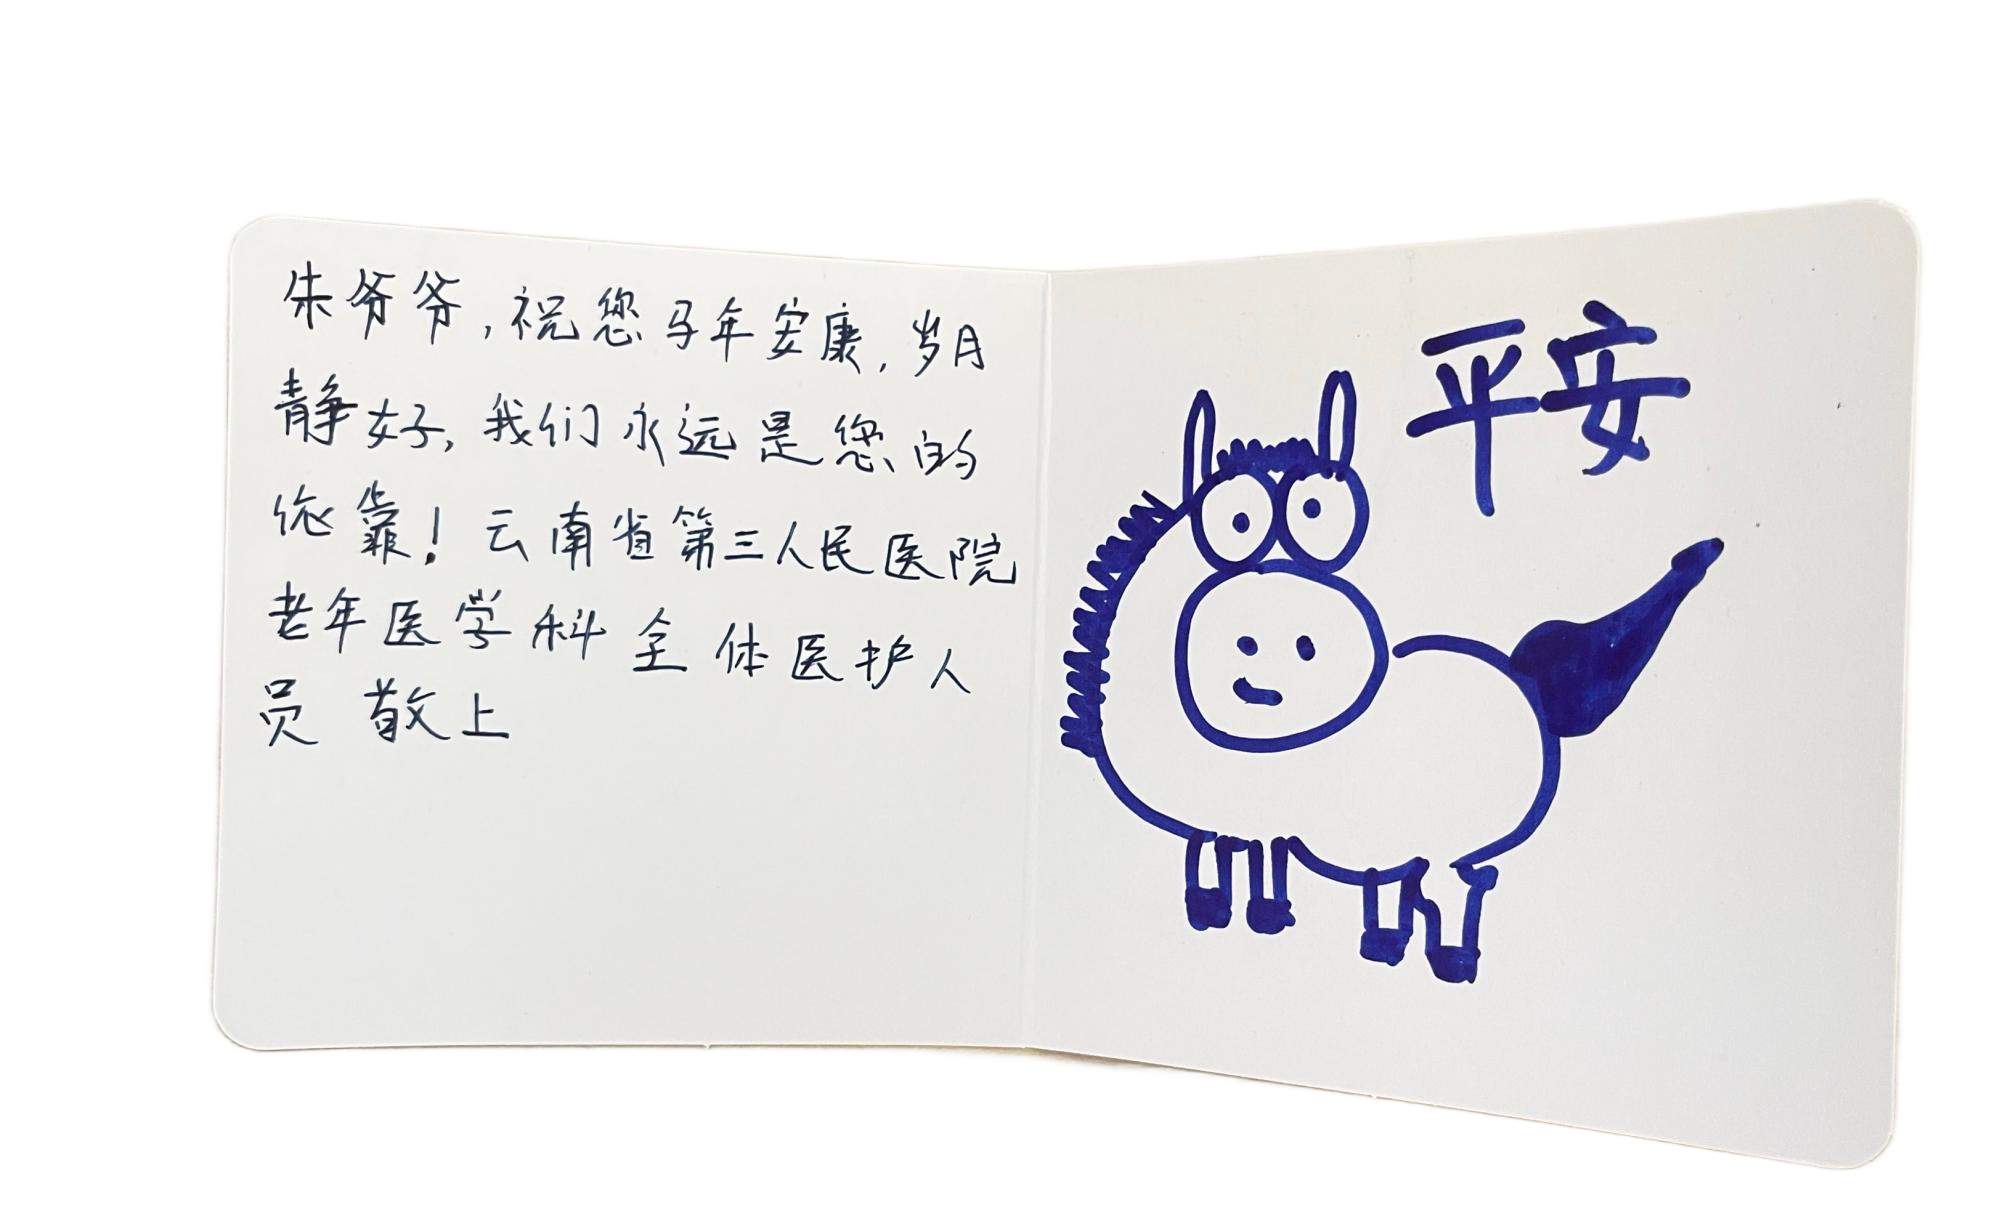 朱爷爷,祝您马年安康,岁月
静好,我们永远是您的
依靠!云南省第三人民医院
老年医学科全体医护人
员 敬上
平安